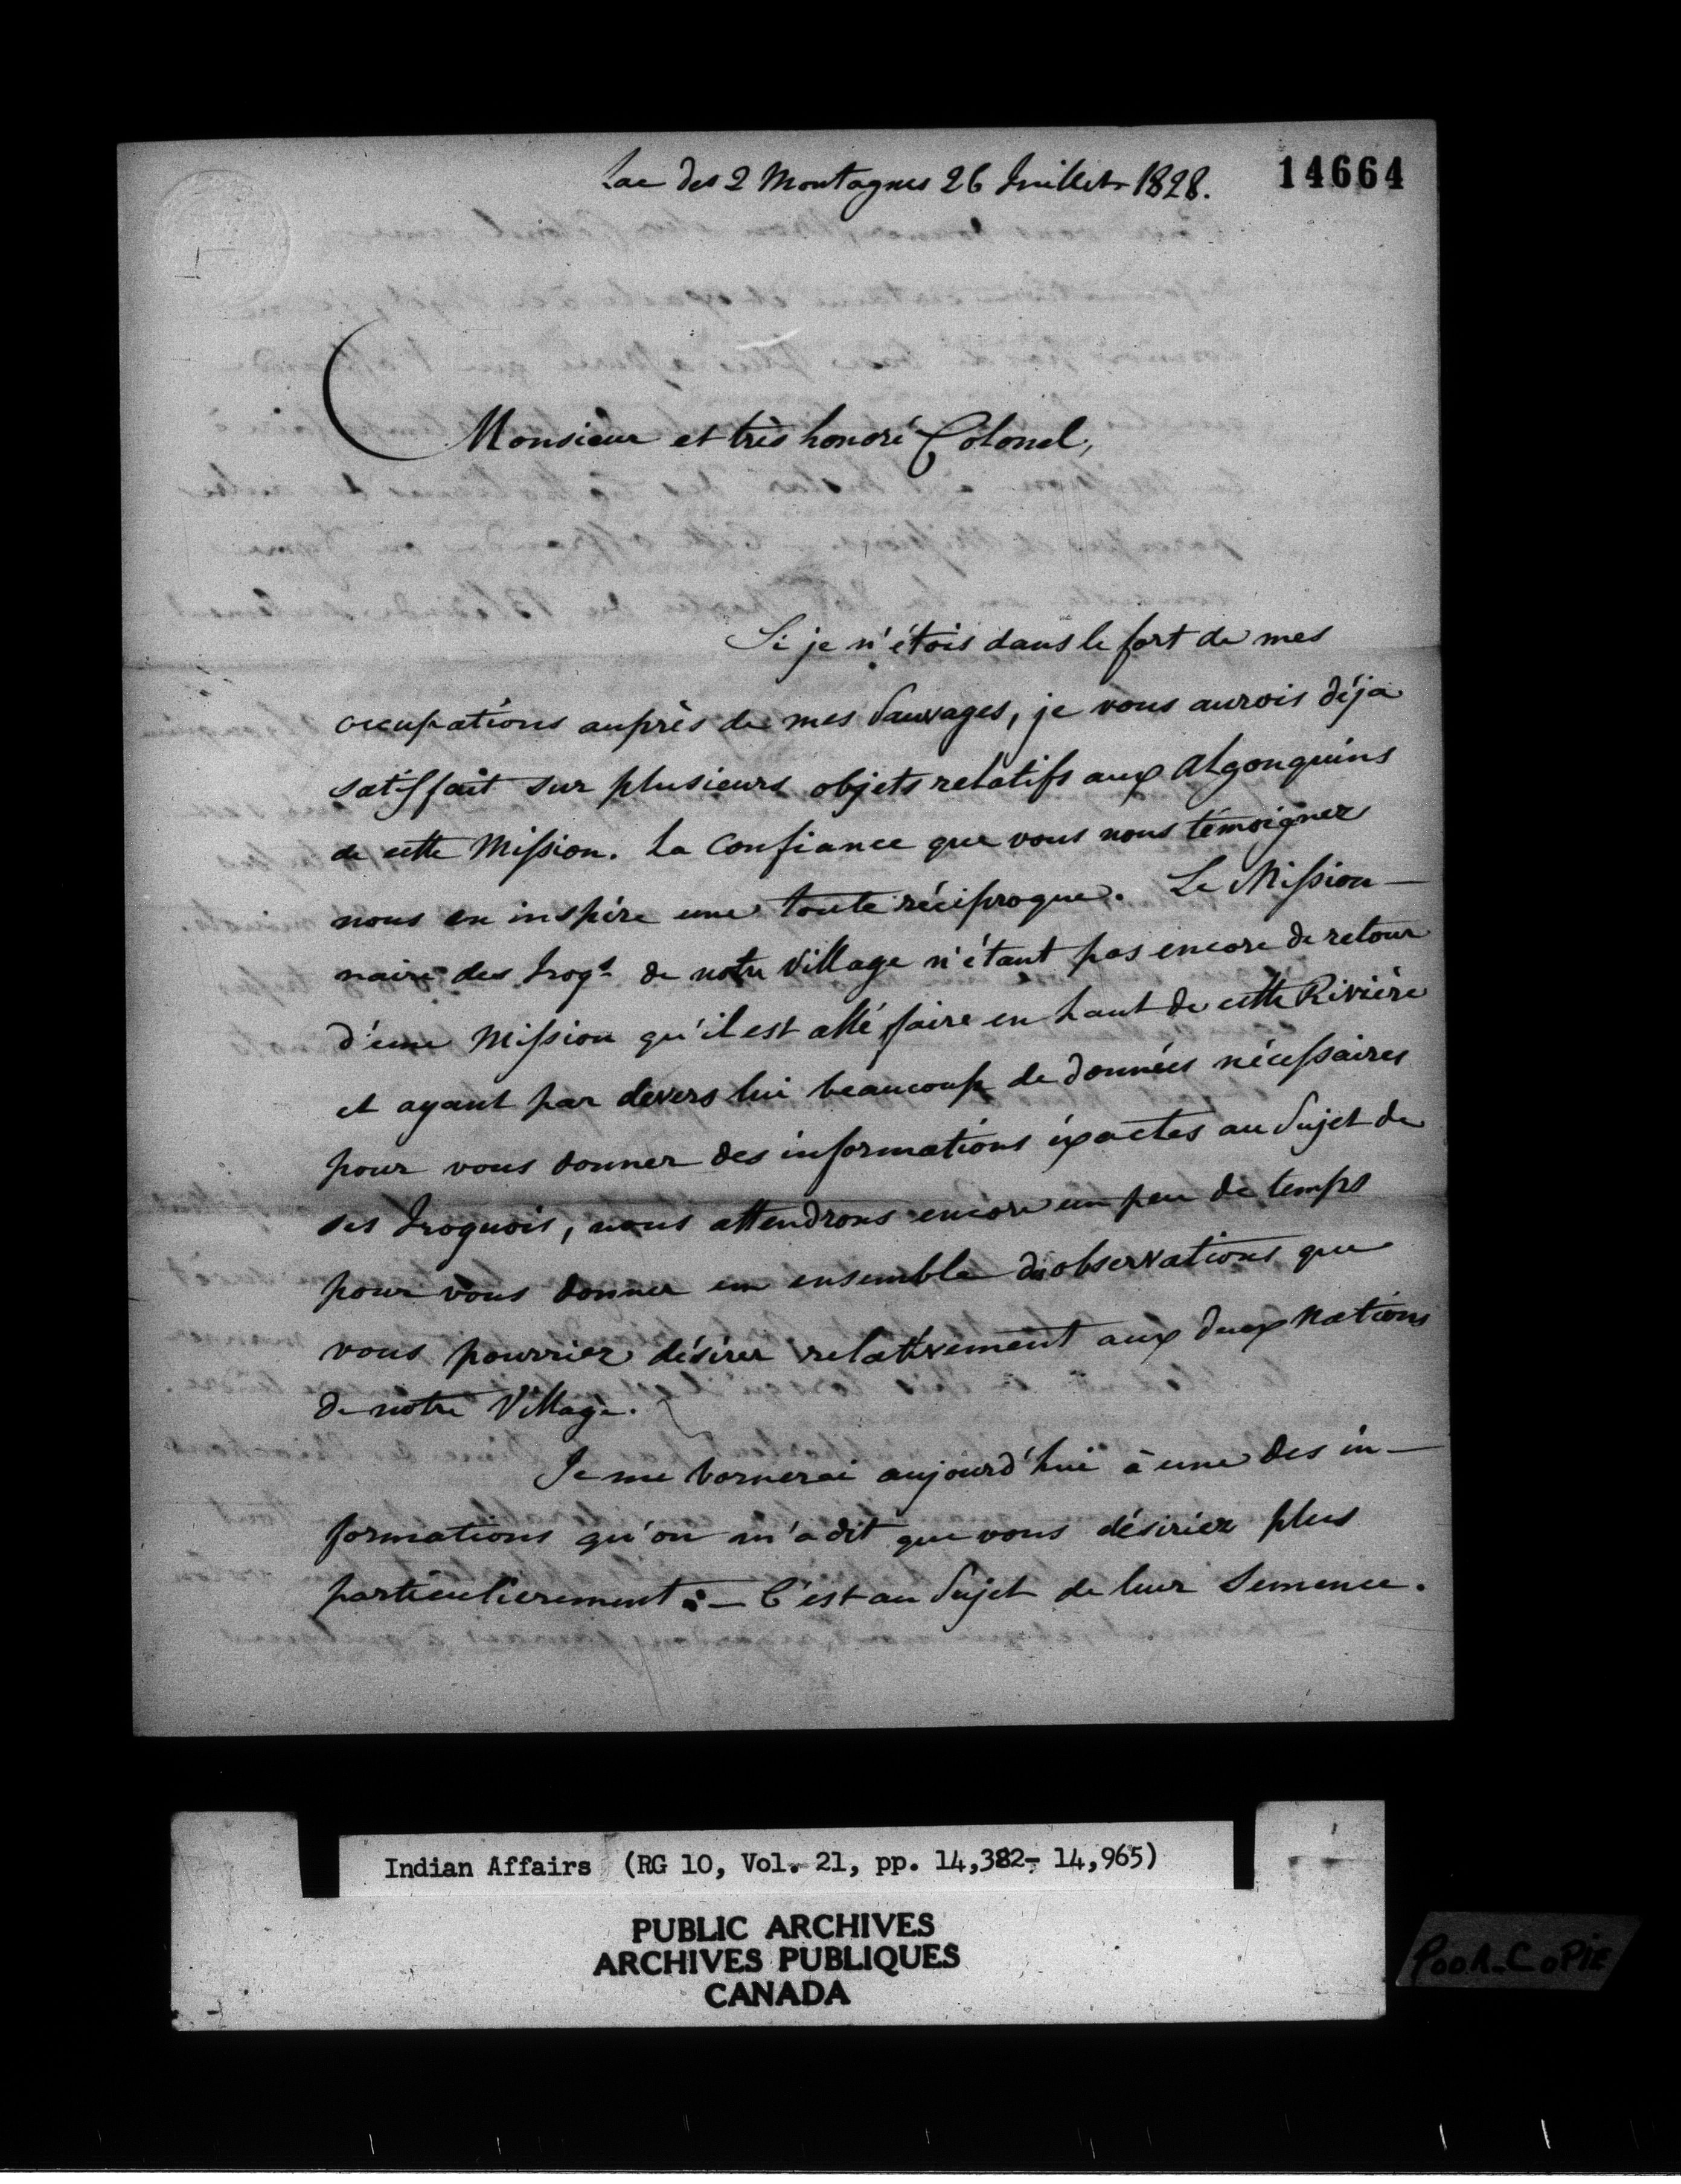 Lac des 2 Montagnes 26 Juillet 1828.
14664
Monsieur et très honoré Colonel,
Si je n'étois dans le fort de mes
occupations auprès de mes Sauvages, je vous aurois déja
satisfait sur plusieurs objets relatifs aux Algonquins
de cette Mission. La Confiance que vous nous témoignez
nous en inspire une toute réciproque. Le Mission—
naire des Iroqs de notre Village n'étant pas encore de retour
d'une Mission qu'il est allé faire en haut de cette Rivière
et ayant par devers lui beaucoup de données nécessaires
pour vous donner des informations éxactes au Sujet de
ses Iroquois, nous attendrons encore un peu de temps
pour vous donner un ensemble d'observations que
vous pourriez désirer relativement aux deux Nations
de notre Village.
Je me bornerai aujourd'hui à une des in—
formations qu'on m'a dit que vous désiriez plus
particulierement :— C'est au Sujet de leur Semence.
Indian Affairs (RG 10, Vol. 21, pp. 14,382- 14,965)
PUBLIC ARCHIVES
ARCHIVES PUBLIQUES
CANADA
POOR-COPIE